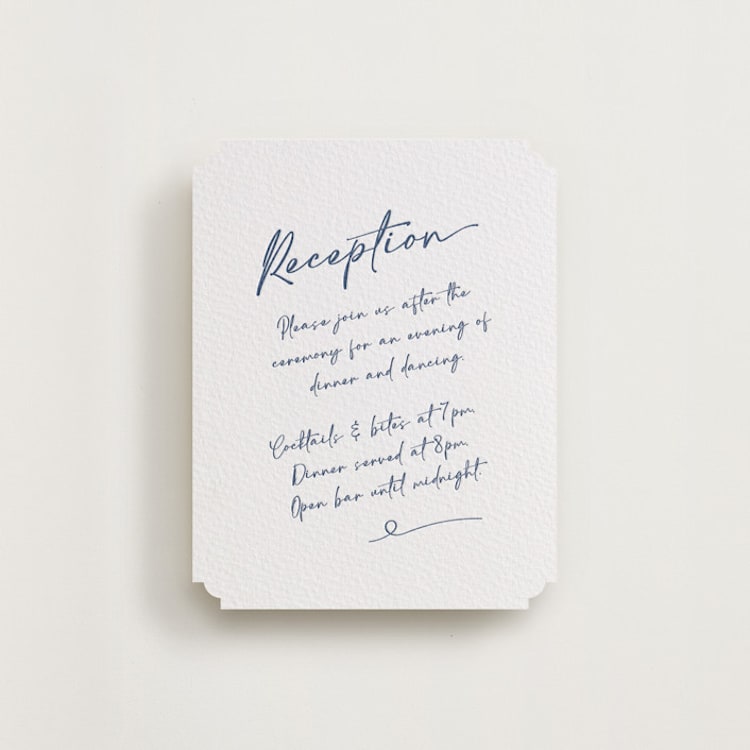 Reception
Please join us after the
ceremony for an evening of
dinner and dancing.
Cocktails & bites at 7pm.
Dinner served at 8pm.
Open bar until midnight.